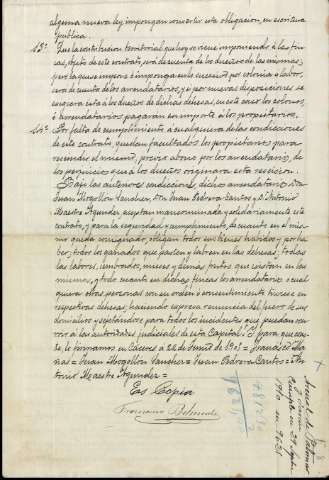 alguna nueva ley impongan convertir esta obligacion, en escritura
publica.
13ª Que la contribucion territorial que hoy se viene imponiendo á las fin-
cas, objeto de este contrato, será de cuenta de los dueños de las mismas,
pero la que se impone ó imponga en lo sucesivo por colonia y labor,
será de cuenta de los arrendatarios, y si por nuevas disposiciones se
exigiera esta á los dueños de dichas dehesas, en este caso los colonos,
ó arrendatarios pagarán su importe á los propietarios.
14ª Por falta de cumplimiento á cualquiera de las condiciones
de este contrato, quedan facultados los propietarios para
rescindir el mismo, previo abono por los arrendatarios, de
los perjuicios que á los dueños origináre esta rescision.
Bajo las anteriores condiciones, dichos arrendatarios Don
Juan Mogollon Sanchez, Don Juan Pedrera Santos y D. Antonio
Maestre Agundez, aceptan mancomunada y solidariamente este
contrato, y para la seguridad y cumplimiento, de cuanto en el mis-
mo queda consignado, obligan todos sus bienes habidos y por ha-
ber, todos los ganados que pasten y labren en las dehesas, todas
las labores, sembrados, mieses y demas frutos que existan en las
mismas, y todo cuanto en dichas fincas los arrendatarios ó cual
quiera otras personas con su orden ó consentimiento tuviesen en
respectivas dehesas, haciendo expresa renuncia del fuero de sus
domicilios y sometidos para todos los incidentes que puedan ocur-
rir á las autoridades judiciales de esta Capital. Y para que cons-
te, lo firmamos en Cáceres á 22 de Junio de 1905 = Juan
Mogollon Sanchez = Juan Pedrera Santos = An-
tonio Maestre Agundez =
Es Copia